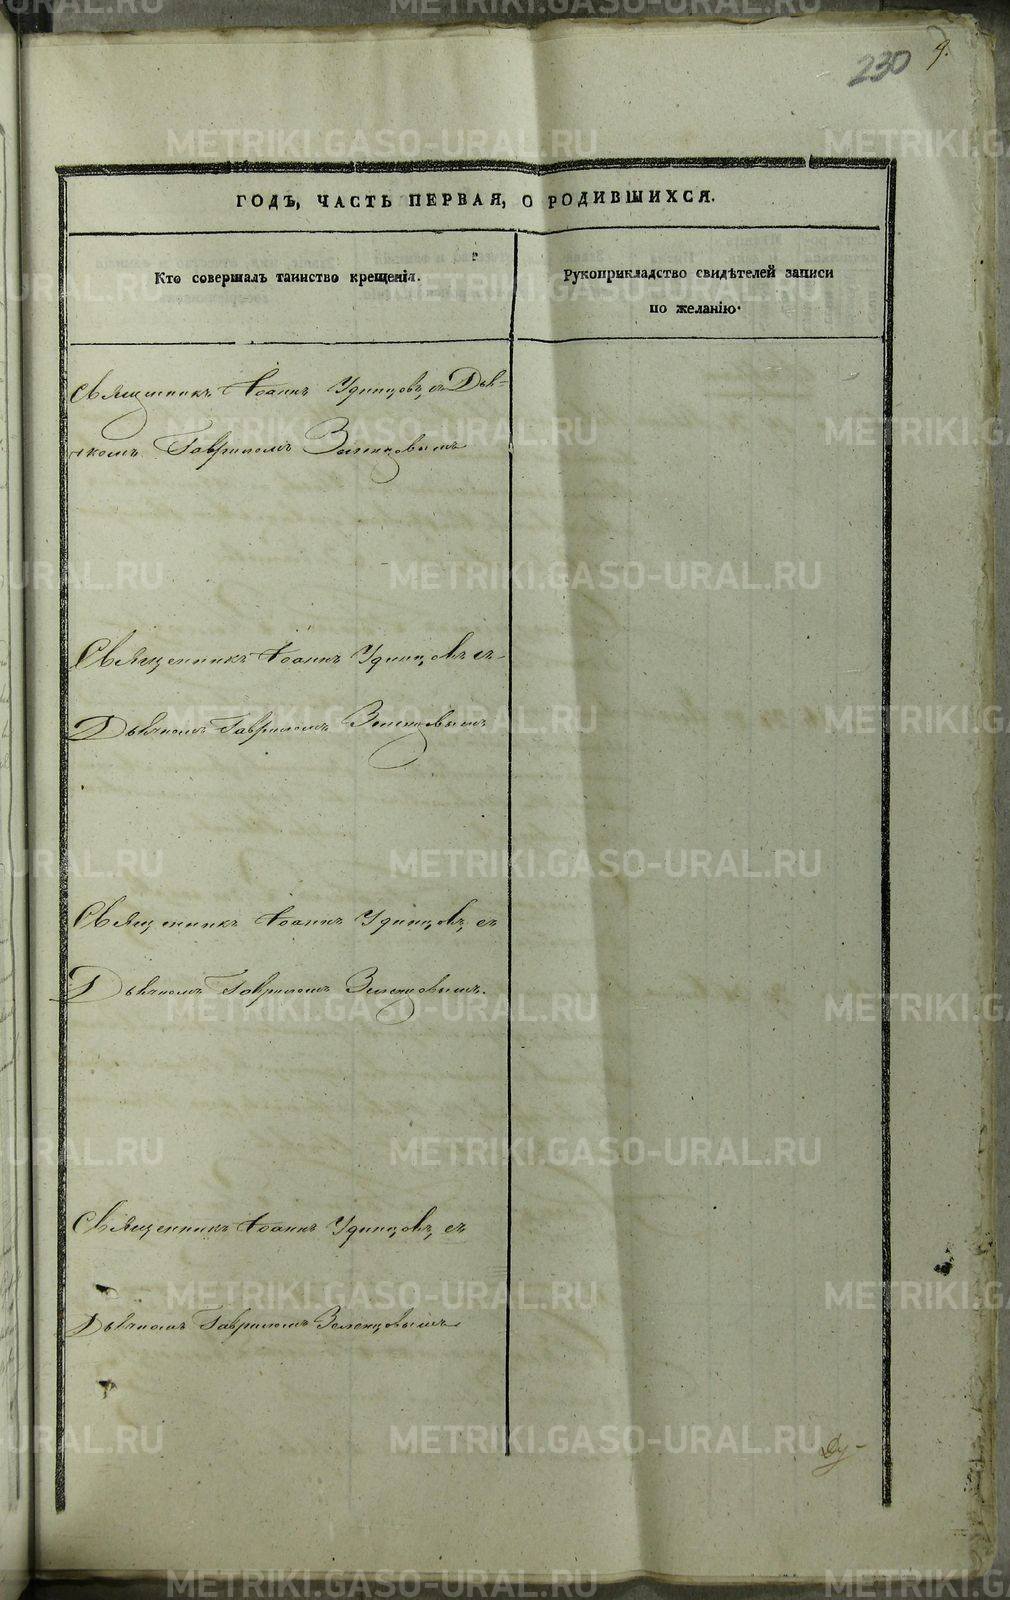 230
9.
ГОДЪ, ЧАСТЬ ПЕРВАЯ, О РОДИВШИХСЯ.
Кто совершалъ таинство крещенія.
Рукоприкладство свидѣтелей записи
по желанію.
Священникъ Іоаннъ Удинцовъ, съ Дья-
чкомъ Гавриломъ Зеленцовымъ
Священникъ Іоаннъ Удинцовъ съ
Дьячкомъ Гавриломъ Зеленцовымъ
Священникъ Іоаннъ Удинцовъ, съ
Дьячкомъ Гавриломъ Зеленцовымъ.
Священникъ Іоаннъ Удинцовъ, съ
Дьячкомъ Гавриломъ Зеленцовымъ
METRIKI.GASO-URAL.RU